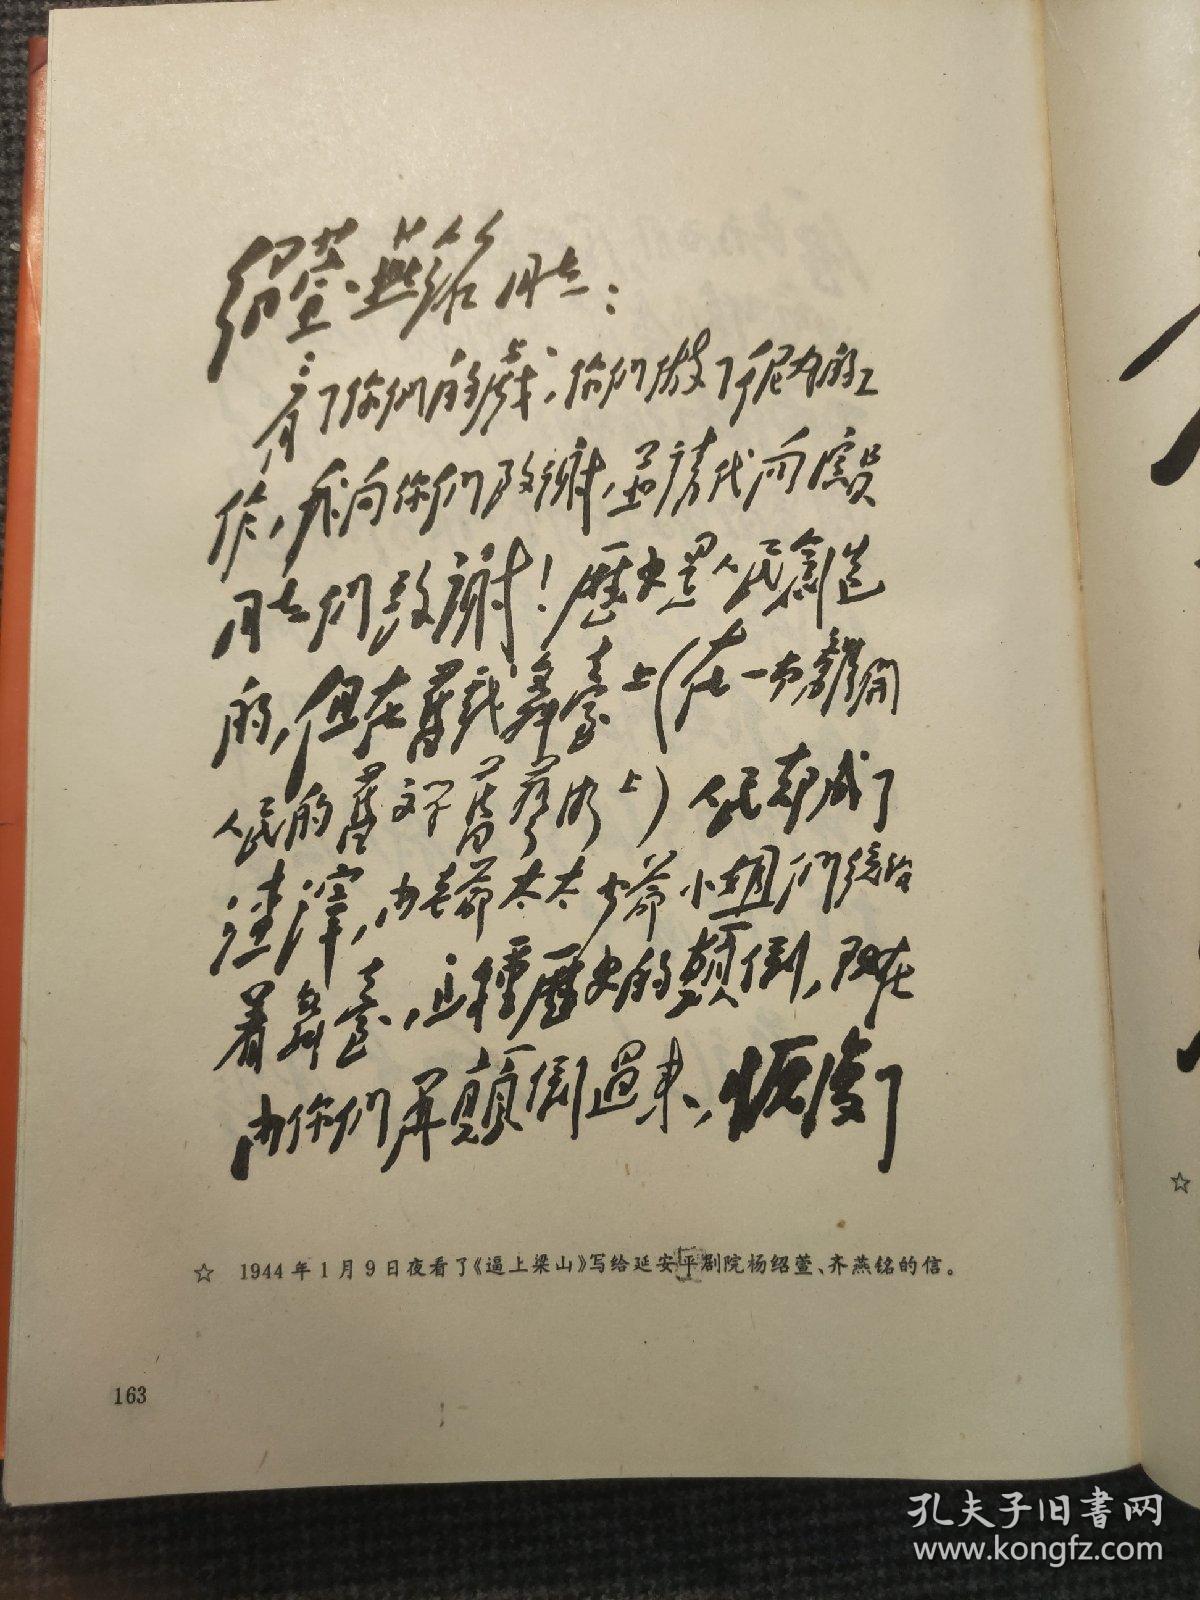 紹萱、燕銘同志:
看了你们的戲,你们做了很好的工
作,我向你们致謝,並請代向演員
同志们致謝!歷史是人民創造
的,但在舊戲舞臺上(在一切離開
人民的舊文学舊藝術上)人民却成了
渣滓,由老爺太太少爺小姐们統治
着舞臺,這種歷史的顛倒,現在
由你们再顛倒過来,恢復了
☆ 1944年1月9日夜看了《逼上梁山》写给延安平剧院杨绍萱、齐燕铭的信。
163
☆
孔夫子旧書网
www.kongfz.com